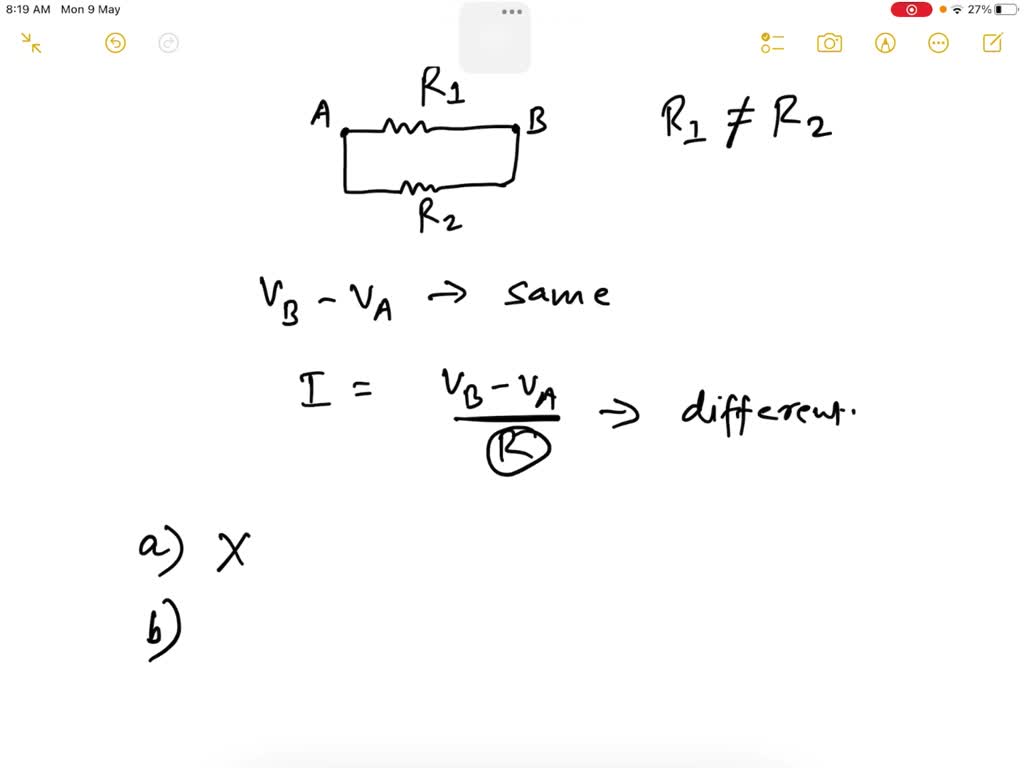 8:19 AM Mon 9 May
27%
R1
A
B
R1 ≠ R2
R2
VB - VA → same
I = VB - VA / R → different.
a) X
b)